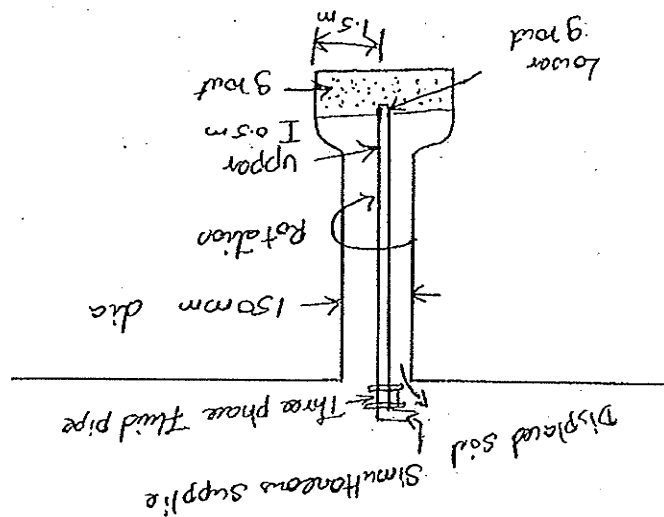 Simultaneous Supplie
Displaced soil
Three phase Fluid pipe
150mm dia
Rotation
Upper
0.5m
grout
Lower
grout
1.5m